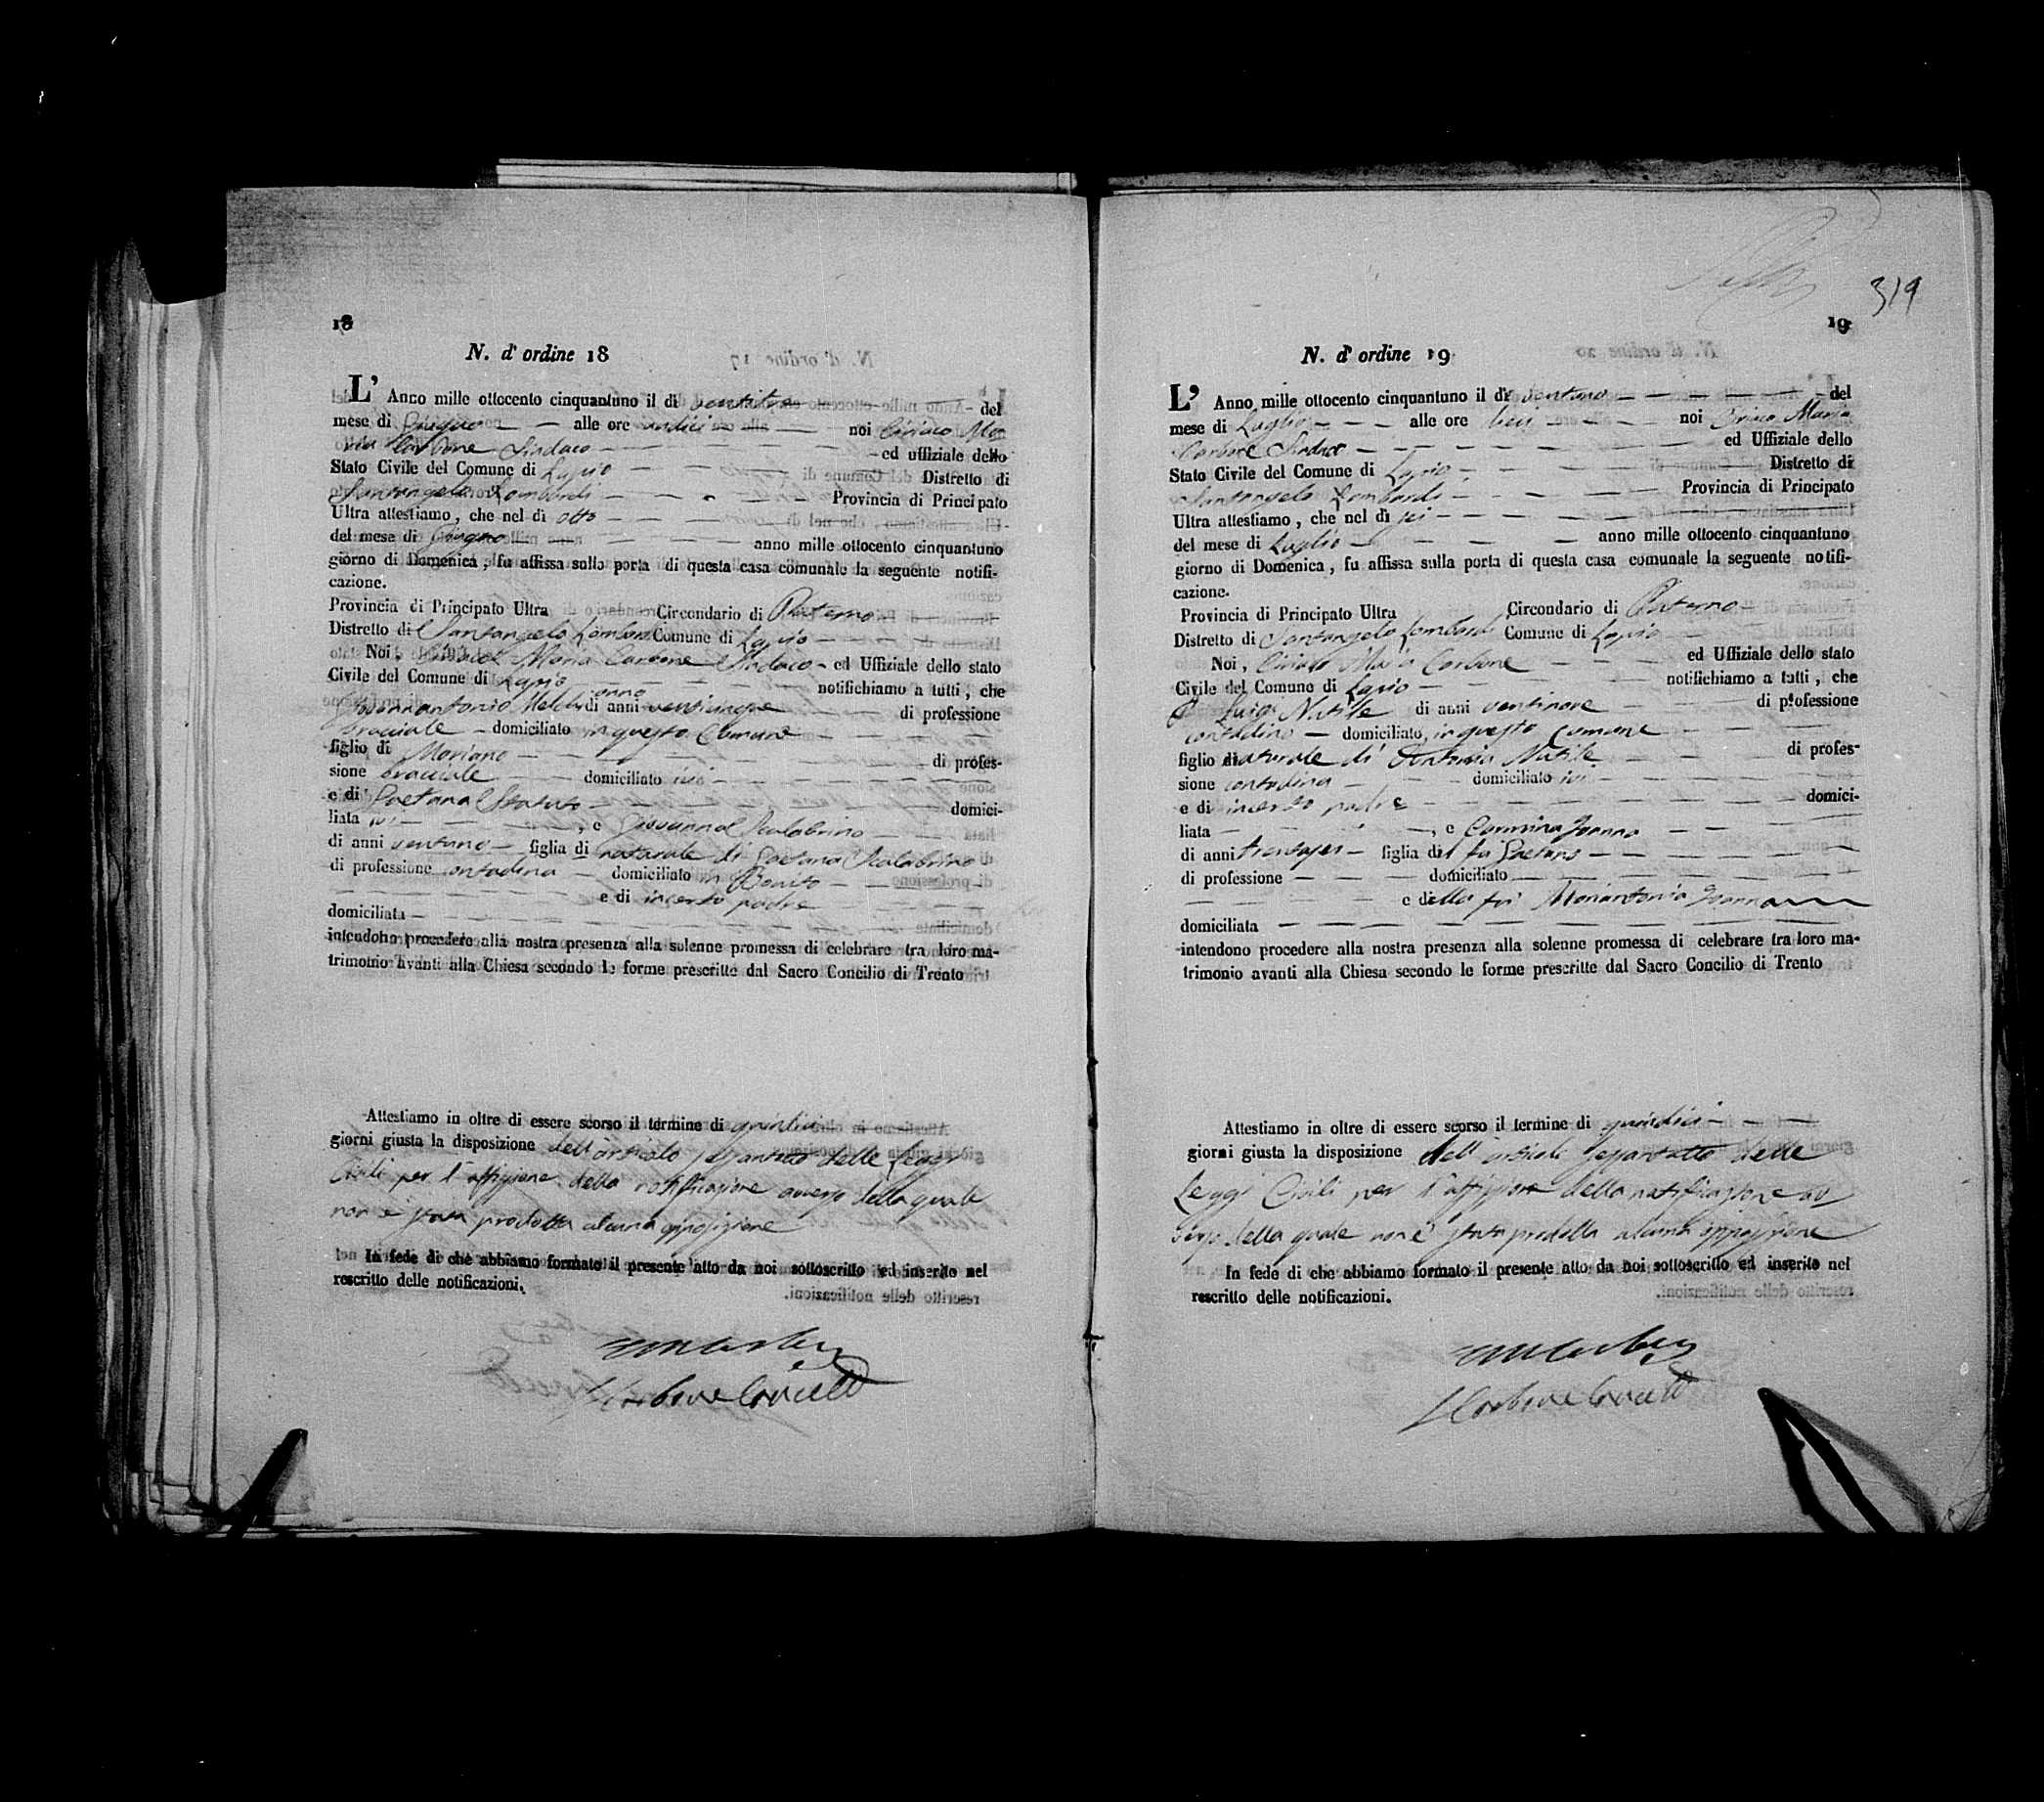 18
N. d' ordine 18
L' Anno mille ottocento cinquantuno il di ventitre del
mese di Giugno alle ore undici noi Ciriaco Ma
ria Carbone Sindaco ed uffiziale dello
Stato Civile del Comune di Lapio Distretto di
Santangelo Lombardi Provincia di Principato
Ultra attestiamo, che nel di otto
del mese di Giugno anno mille ottocento cinquantuno
giorno di Domenica, fu affissa sulla porta di questa casa comunale la seguente notifi-
cazione.
Provincia di Principato Ultra Circondario di Paterno
Distretto di Santangelo Lombardi Comune di Lapio
Noi, Ciriaco Maria Carbone Sindaco ed Uffiziale dello stato
Civile del Comune di Lapio notifichiamo a tutti, che
Giovannantonio di anni venticinque di professione
bracciale domiciliato in questo Comune
figlio di Mariano di profes-
sione bracciale domiciliato ivi
e di Gaetana domici-
liata ivi, e Giovanna Scalabrino
di anni ventuno figlia di naturale di Gaetana Scalabrino
di professione contadina domiciliato in Bonito
e di incerto padre
domiciliata
intendono procedere alla nostra presenza alla solenne promessa di celebrare tra loro ma-
trimonio avanti alla Chiesa secondo le forme prescritte dal Sacro Concilio di Trento
Attestiamo in oltre di essere scorso il termine di quindici
giorni giusta la disposizione dell'articolo sessantotto delle Leggi
Civili per l'affissione della notificazione avverso della quale
non è stata prodotta alcuna opposizione
In fede di che abbiamo formato il presente atto da noi sottoscritto ed inserito nel
rescritto delle notificazioni.
319
19
N. d' ordine 19
L' Anno mille ottocento cinquantuno il dì ventuno del
mese di Luglio alle ore noi Ciriaco Maria
Carbone Sindaco ed Uffiziale dello
Stato Civile del Comune di Lapio Distretto di
Santangelo Lombardi Provincia di Principato
Ultra attestiamo, che nel dì sei
del mese di Luglio anno mille ottocento cinquantuno
giorno di Domenica, fu affissa sulla porta di questa casa comunale la seguente notifi-
cazione.
Provincia di Principato Ultra Circondario di Paterno
Distretto di Santangelo Lombardi Comune di Lapio
Noi, Ciriaco Maria Carbone ed Uffiziale dello stato
Civile del Comune di Lapio notifichiamo a tutti, che
Luigi Natille di anni ventinove di professione
contadino domiciliato in questo comune
figlio naturale di Antonia Natille di profes-
sione contadina domiciliato ivi
e di incerto padre domici-
liata, e Carmina Joanna
di anni trentasei figlia del fu Gaetano
di professione domiciliato
e della fu Mariantonia Joanna
domiciliata
intendono procedere alla nostra presenza alla solenne promessa di celebrare tra loro ma-
trimonio avanti alla Chiesa secondo le forme prescritte dal Sacro Concilio di Trento
Attestiamo in oltre di essere scorso il termine di quindici
giorni giusta la disposizione dell'articolo sessantotto delle
Leggi Civili per l'affissione della notificazione av
verso della quale non è stata prodotta alcuna opposizione
In fede di che abbiamo formato il presente atto da noi sottoscritto ed inserito nel
rescritto delle notificazioni.